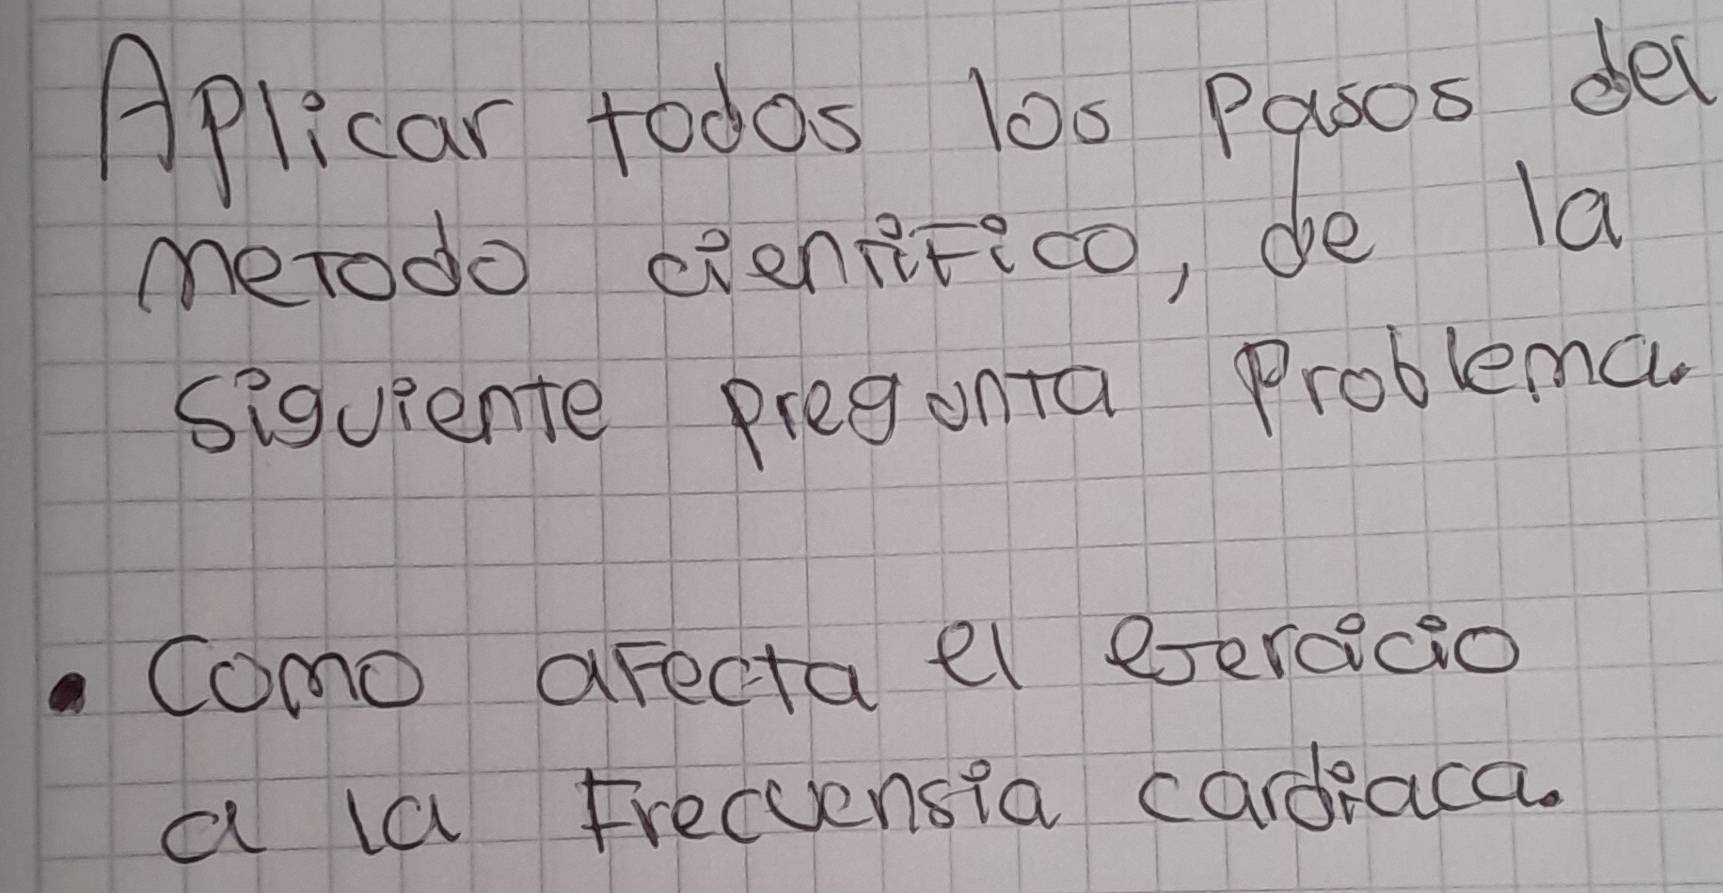 Aplicar todos los pasos del
metodo cientifico, de la
siguiente pregunta problema.
• Como afecta el ejercicio
a la frecuensia cardiaca.